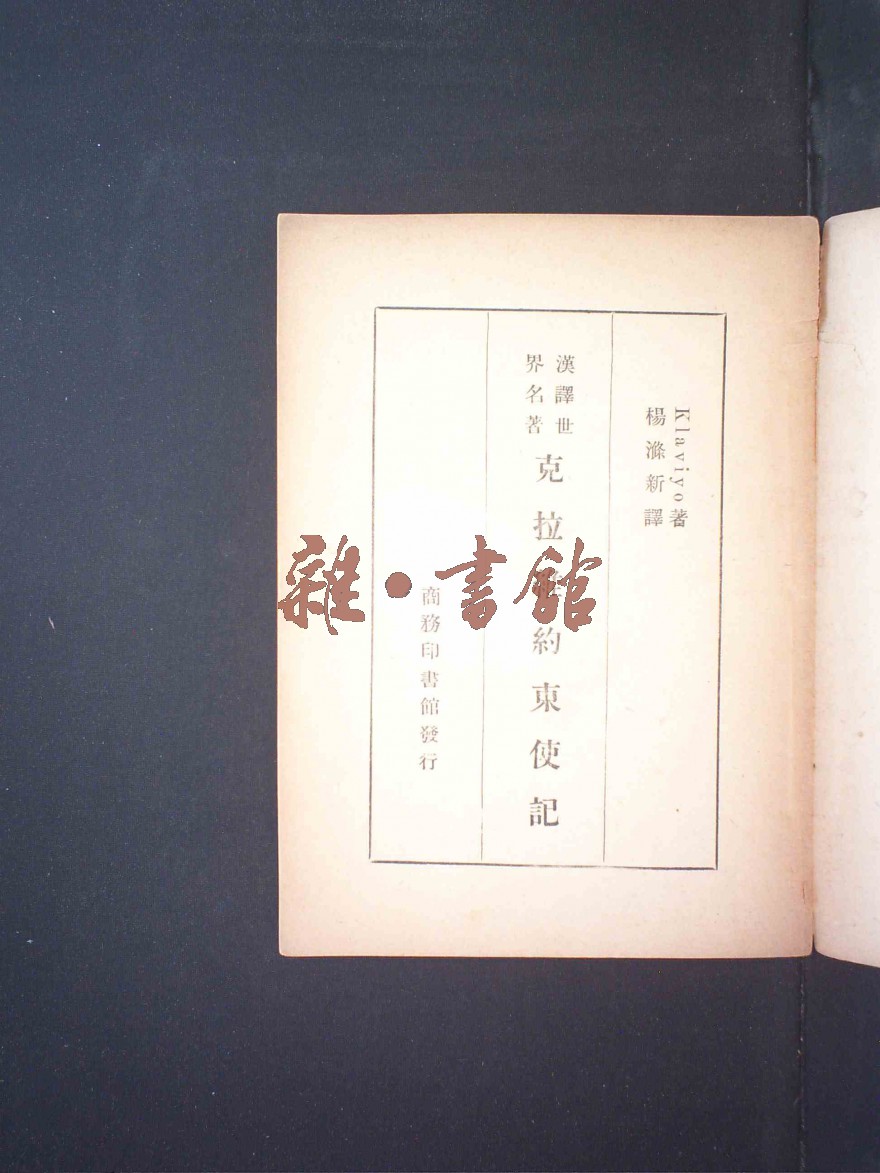 Klaviyo著
楊滌新譯
漢譯世
界名著
克拉維約東使記
商務印書館發行
雜•書館